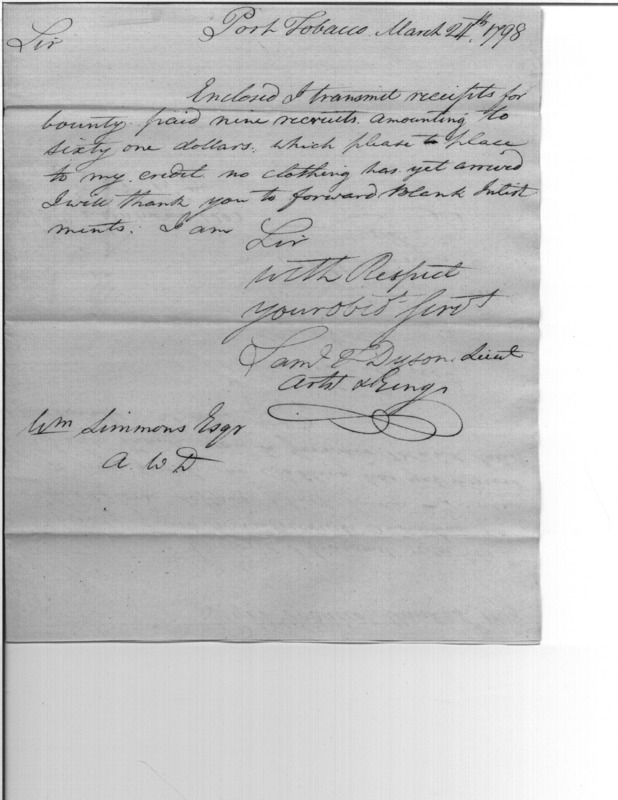 Port Tobacco March 24th, 1798
Sir
Enclosed I transmit receipts for
bounty paid nine recruits amounting to
sixty one dollars, which please to place
to my credit no clothing has yet arrived
I will thank you to forward blank Inlist
ments. I am Sir
with Respect
your obdt Servt
Saml T Dyson, Lieut
Artst & Engrs
Wm Simmons Esqr
A. W D